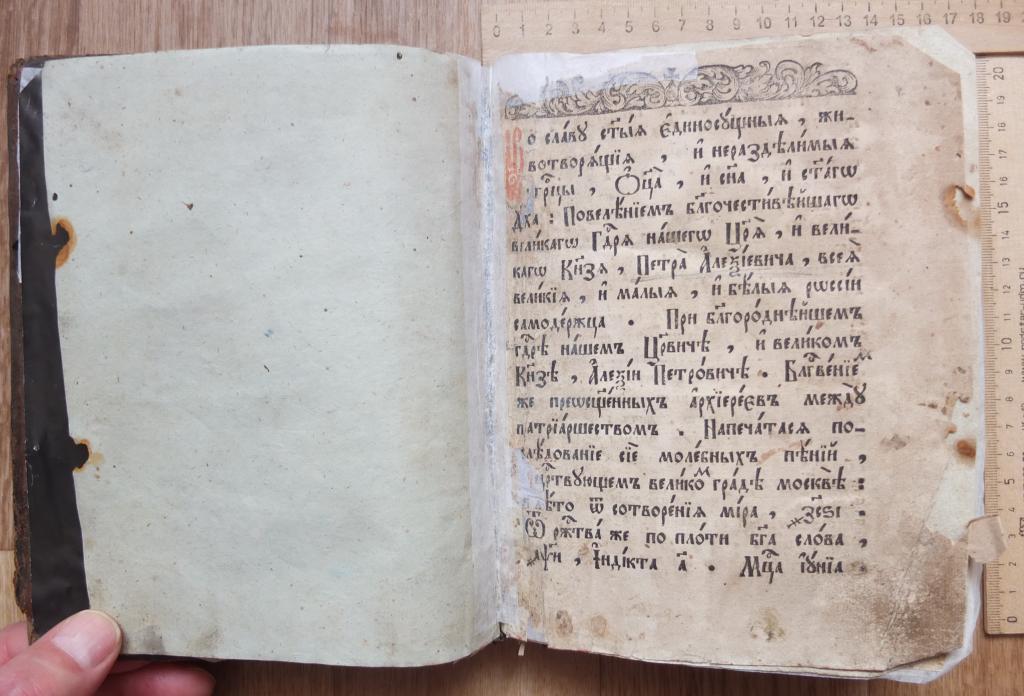 0 1 2 3 4 5 6 7 8 9 10 11 12 13 14 15 16 17 18 19
о сла́вꙋ ст҃ы́ѧ є҆диносꙋ́щныѧ , жи-
вотворѧ́щїѧ , и҆ нераздѣли́мыѧ
трⷪ҇цы , Ѻ҆ц҃а̀ , и҆ сн҃а , и҆ ст҃а́гѡ
дх҃а : Повелѣ́нїемъ бл҃гочести́вѣйшагѡ
вели́кагѡ Гдⷭ҇рѧ на́шегѡ Цр҃ѧ̀ , и҆ вели́-
кагѡ Кн҃зѧ , Петра̀ А҆леѯі́евича , всеѧ̀
вели́кїѧ , и҆ ма́лыѧ , и҆ бѣ́лыѧ рѡссі́и
самоде́ржца . При бл҃горо́днѣйшемъ
гдⷭ҇рѣ на́шемъ Цр҃вичѣ , и҆ вели́комъ
Кн҃зѣ , А҆леѯі́и Петро́вичѣ . Блⷭ҇ве́нїеⷨ
же прею҆сщ҃е́нныхъ а҆рхїере́євъ междꙋ̀
патрїа́ршествомъ . Напеча́тасѧ по-
слѣ́дованїе сїѐ моле́бныхъ пѣ́нїй ,
ца́рствꙋющемъ вели́коⷨ гра́дѣ москвѣ̀ :
лѣ́то ѿ сотворе́нїѧ мі́ра , ҂зс҃ѕі .
Ѿ рж҃тва́ же по пло́ти бг҃а сло́ва ,
҂аѱ҃и , І҆нді́кта а҃ . Мцⷭ҇а і҆ꙋ́нїа .
20
19
18
17
16
15
14
13
12
11
10
9
8
7
6
5
4
3
2
1
0